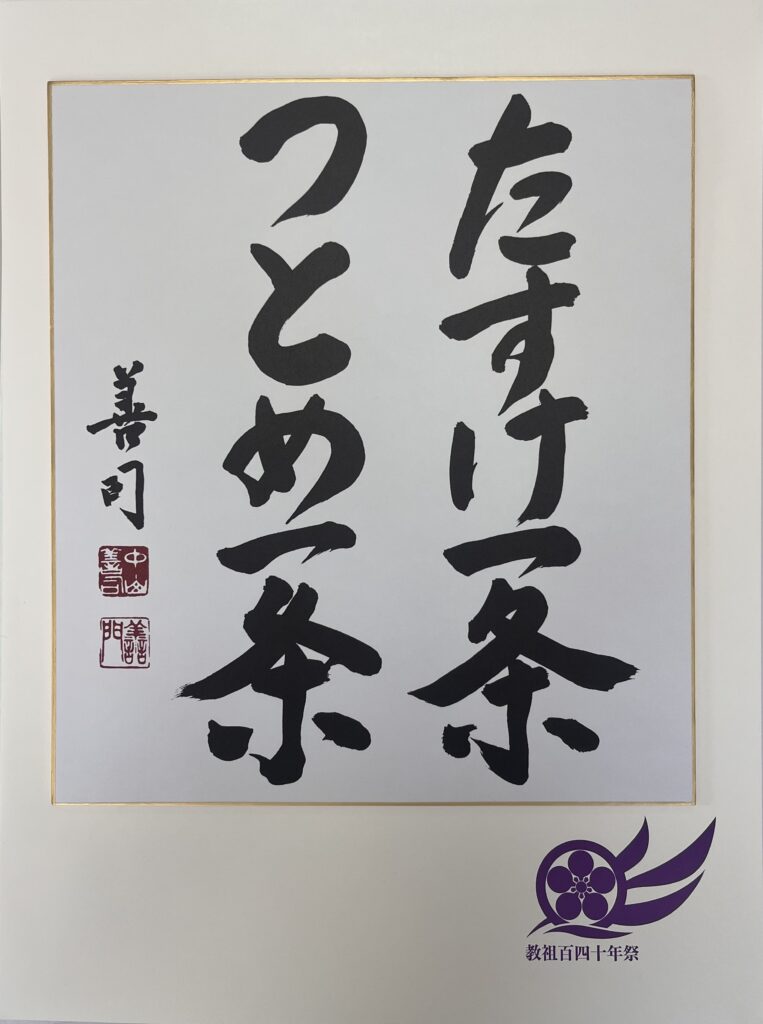 たすけ一条
つとめ一条
善司
中山
善司
善
門
教祖百四十年祭